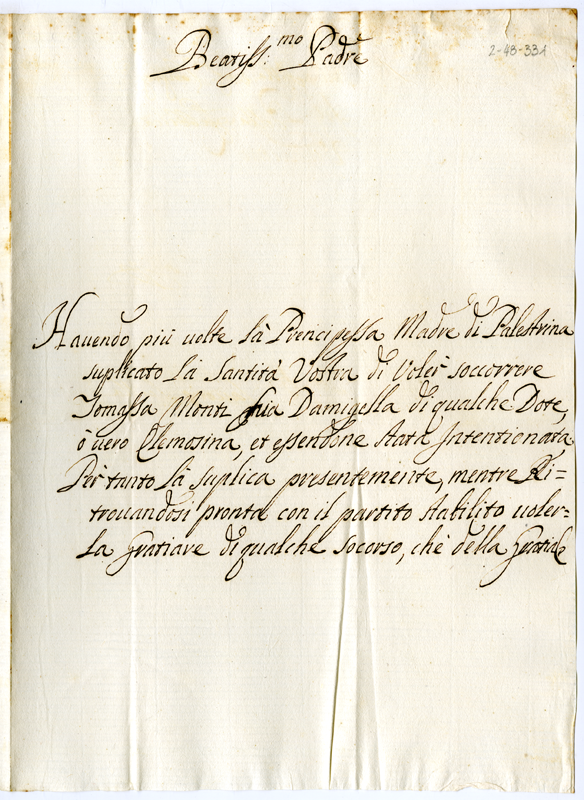 Beatiss:mo Padre
2-48-331
Hauendo più uolte la Prencipessa Madre di Palestrina
suplicato la Santità Vostra di Voler soccorrere
Tomassa Monti sua Damigella di qualche Dote,
ò uero Elemosina, et essendone stata Intentionata
Per tanto la suplica presentemente, mentre Ri=
trouandosi pronta con il partito stabilito uoler=
la gratiare di qualche socorso, che della Gratia &